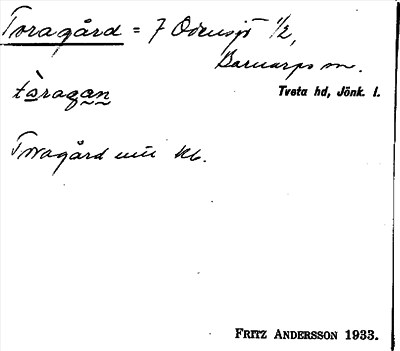 Toragård = 7 Odensjö 1/2,
Barnarps sn.
tàragan
Tveta hd, Jönk. l.
Toragård
FRITZ ANDERSSON 1933.